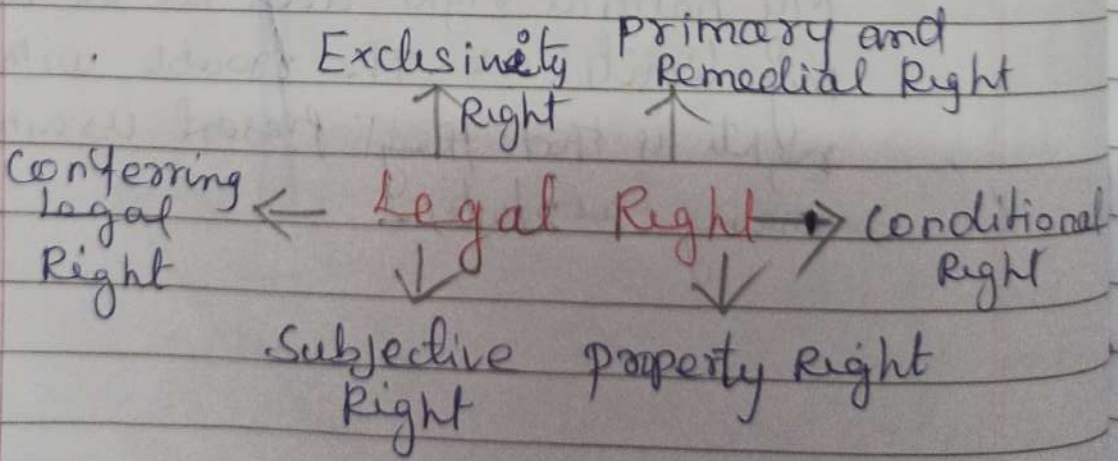 Exclusivity
Right
Primary and
Remedial Right
Conferring
Legal
Right
Legal Right
Conditional
Right
Subjective
Right
Property Right